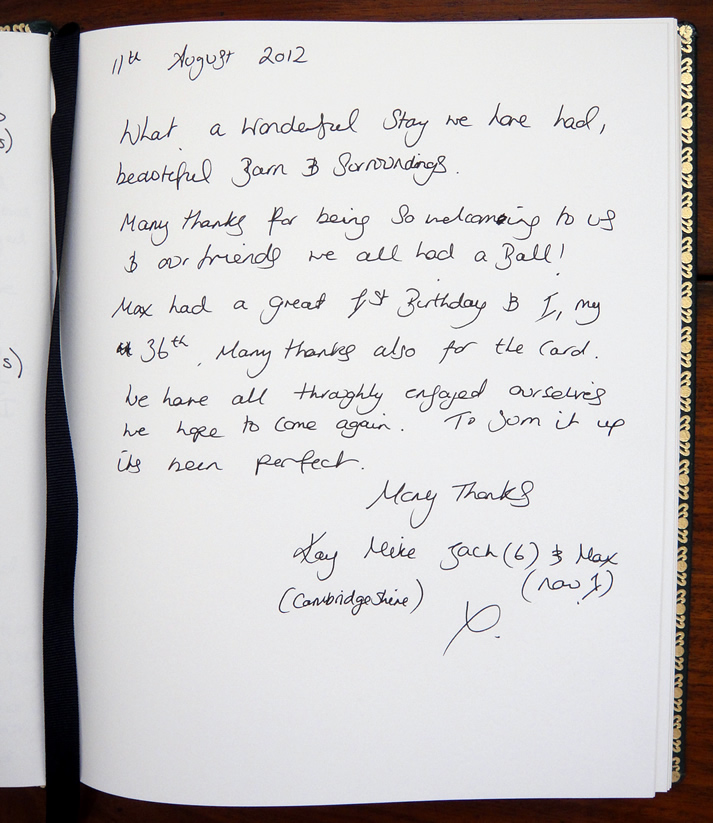 11th August 2012
What a Wonderful Stay we have had,
beautiful Barn & Surroundings.
Many thanks for being so welcoming to us
& our friends we all had a Ball!
Max had a great 1st Birthday & I, my
36th. Many thanks also for the Card.
We have all throughly enjoyed ourselves
we hope to come again. To Sum it up
its been perfect.
Many Thanks
Kay Mike Jack (6) & Max
(Cambridgeshire) (now 1)
X.
s)
s)